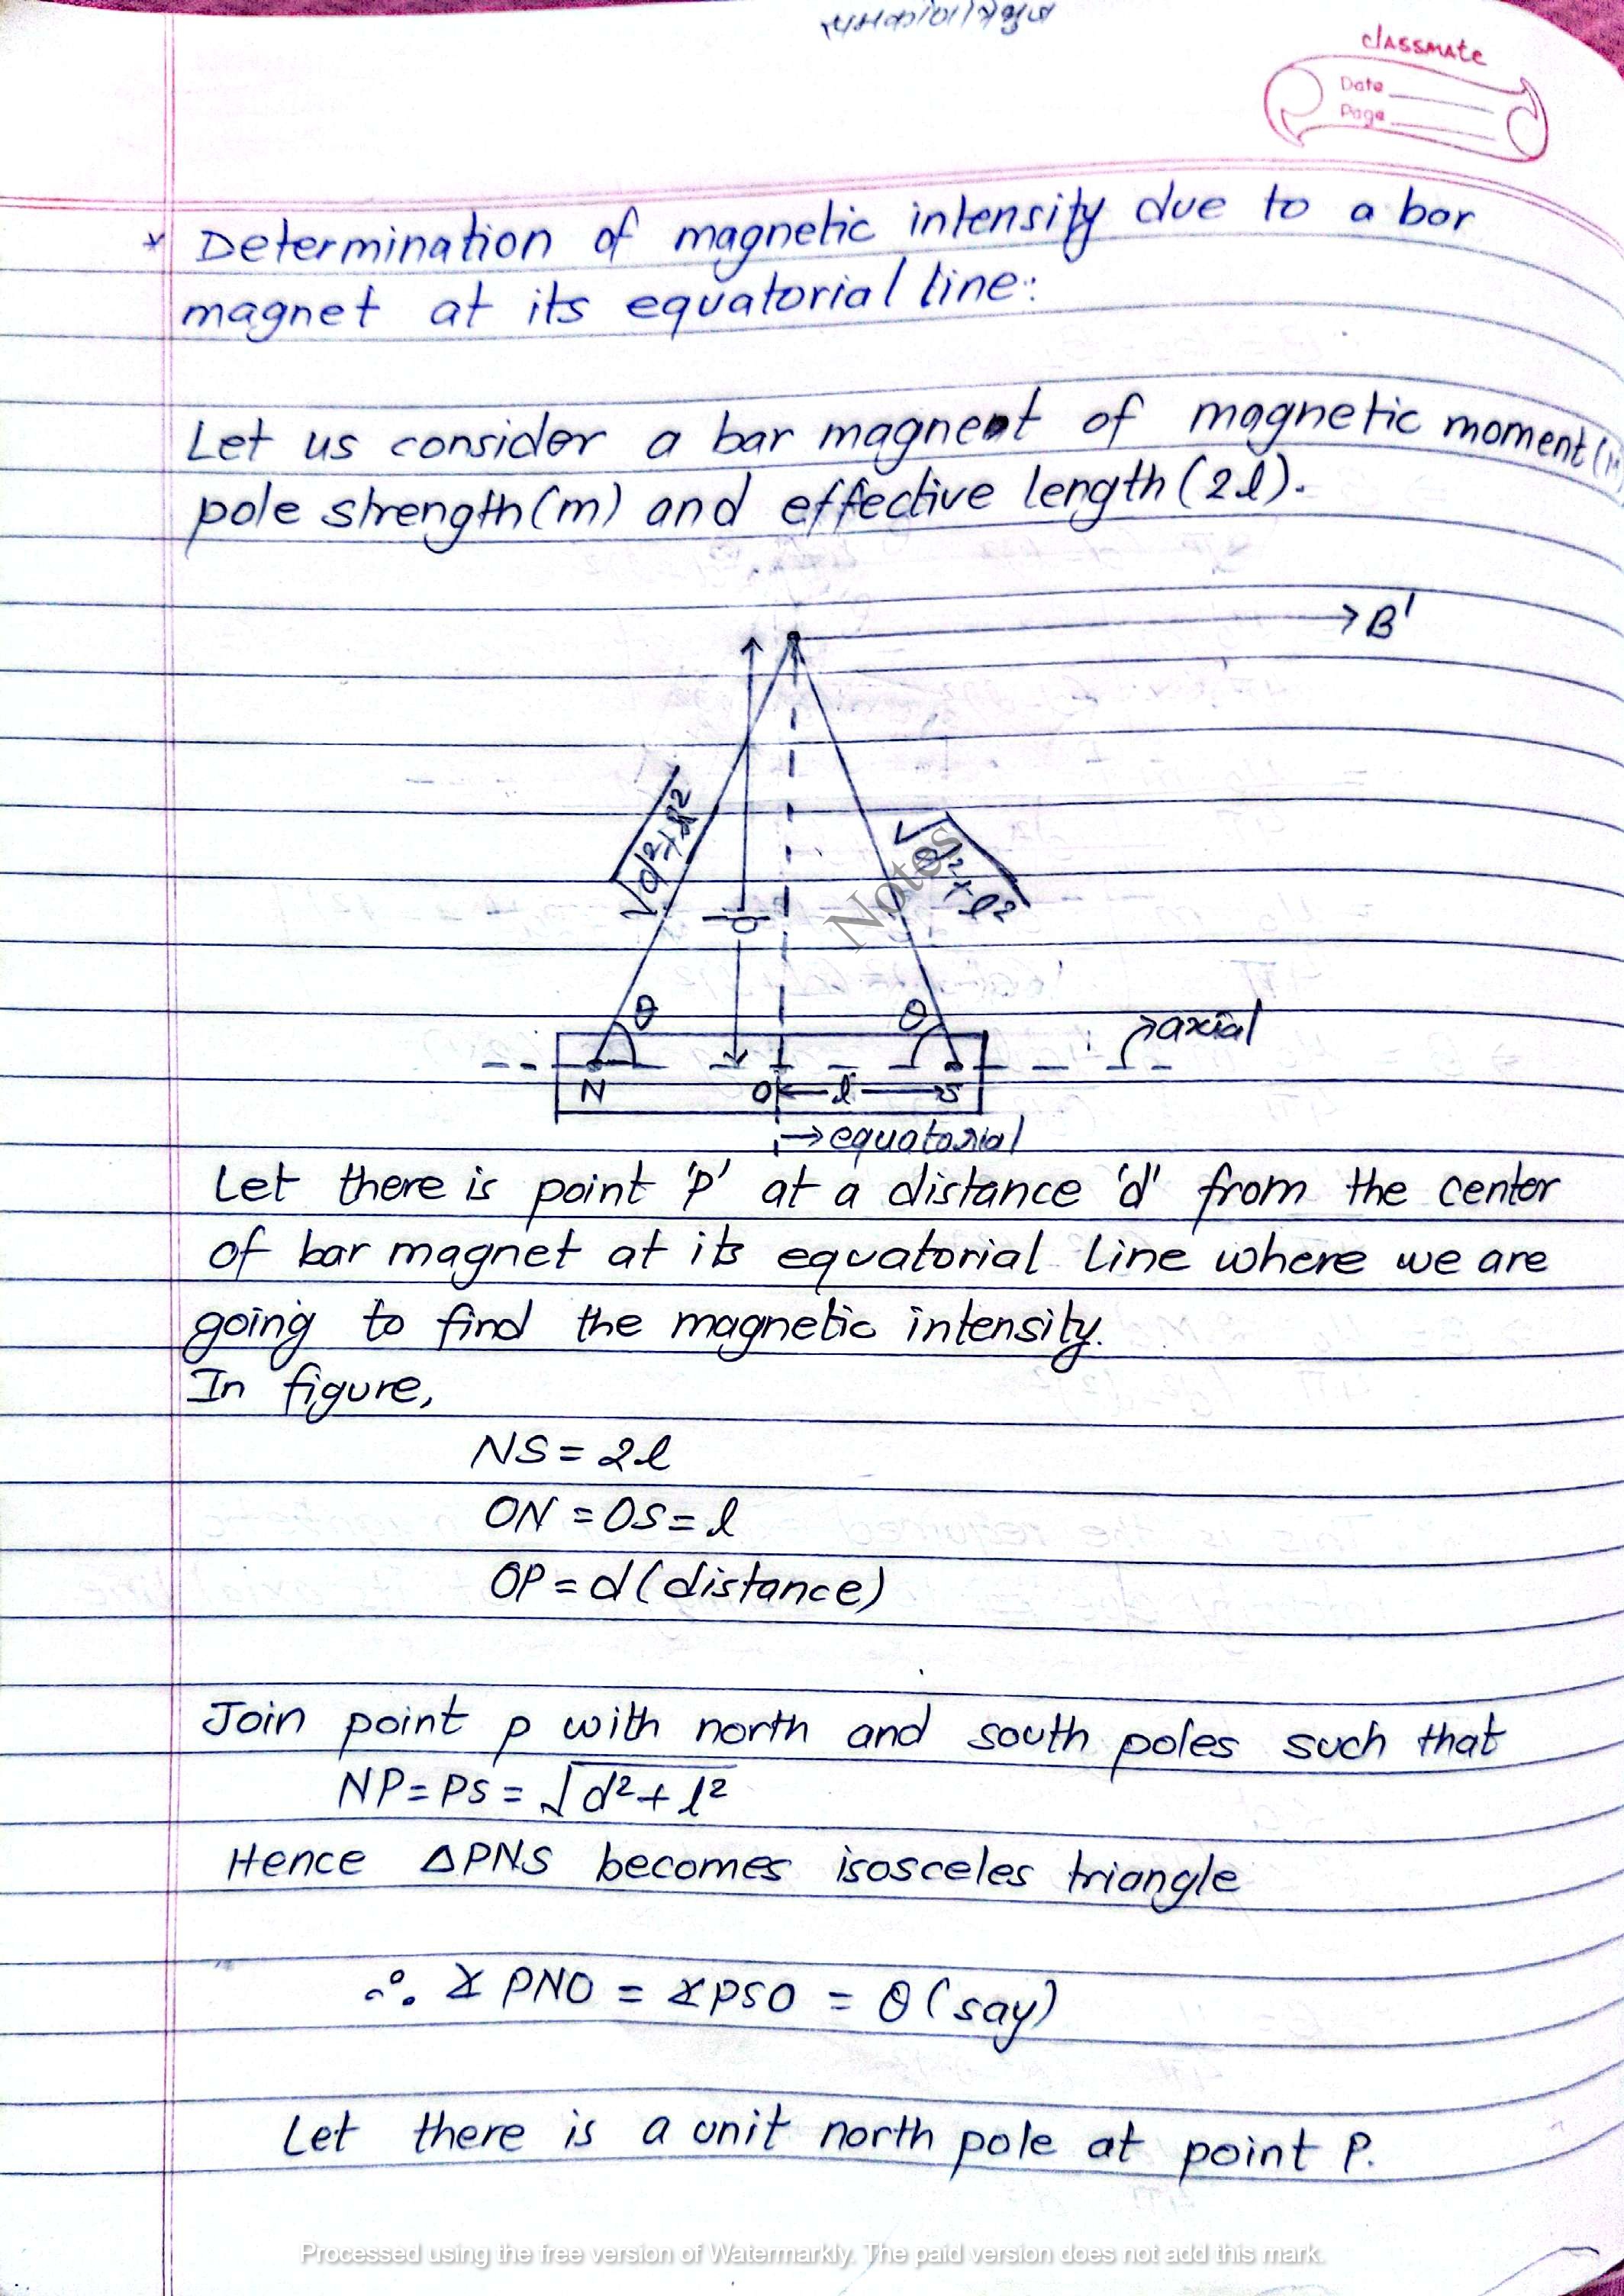 classmate
Date
Page
* Determination of magnetic intensity due to a bar
magnet at its equatorial line:
Let us consider a bar magnent of magnetic moment (M
pole strength (m) and effective length (2l).
B'
√d²+l²
√d²+l²
Notes
d
θ
θ
axial
N
O
l
S
equatorial
Let there is point 'p' at a distance 'd' from the center
of bar magnet at its equatorial line where we are
going to find the magnetic intensity.
In figure,
NS = 2l
ON = OS = l
OP = d (distance)
Join point p with north and south poles such that
NP = PS = √d²+l²
Hence △PNS becomes isosceles triangle
∴ ∡ PNO = ∡ PSO = θ (say)
Let there is a unit north pole at point P.
Processed using the free version of Watermarkly. The paid version does not add this mark.